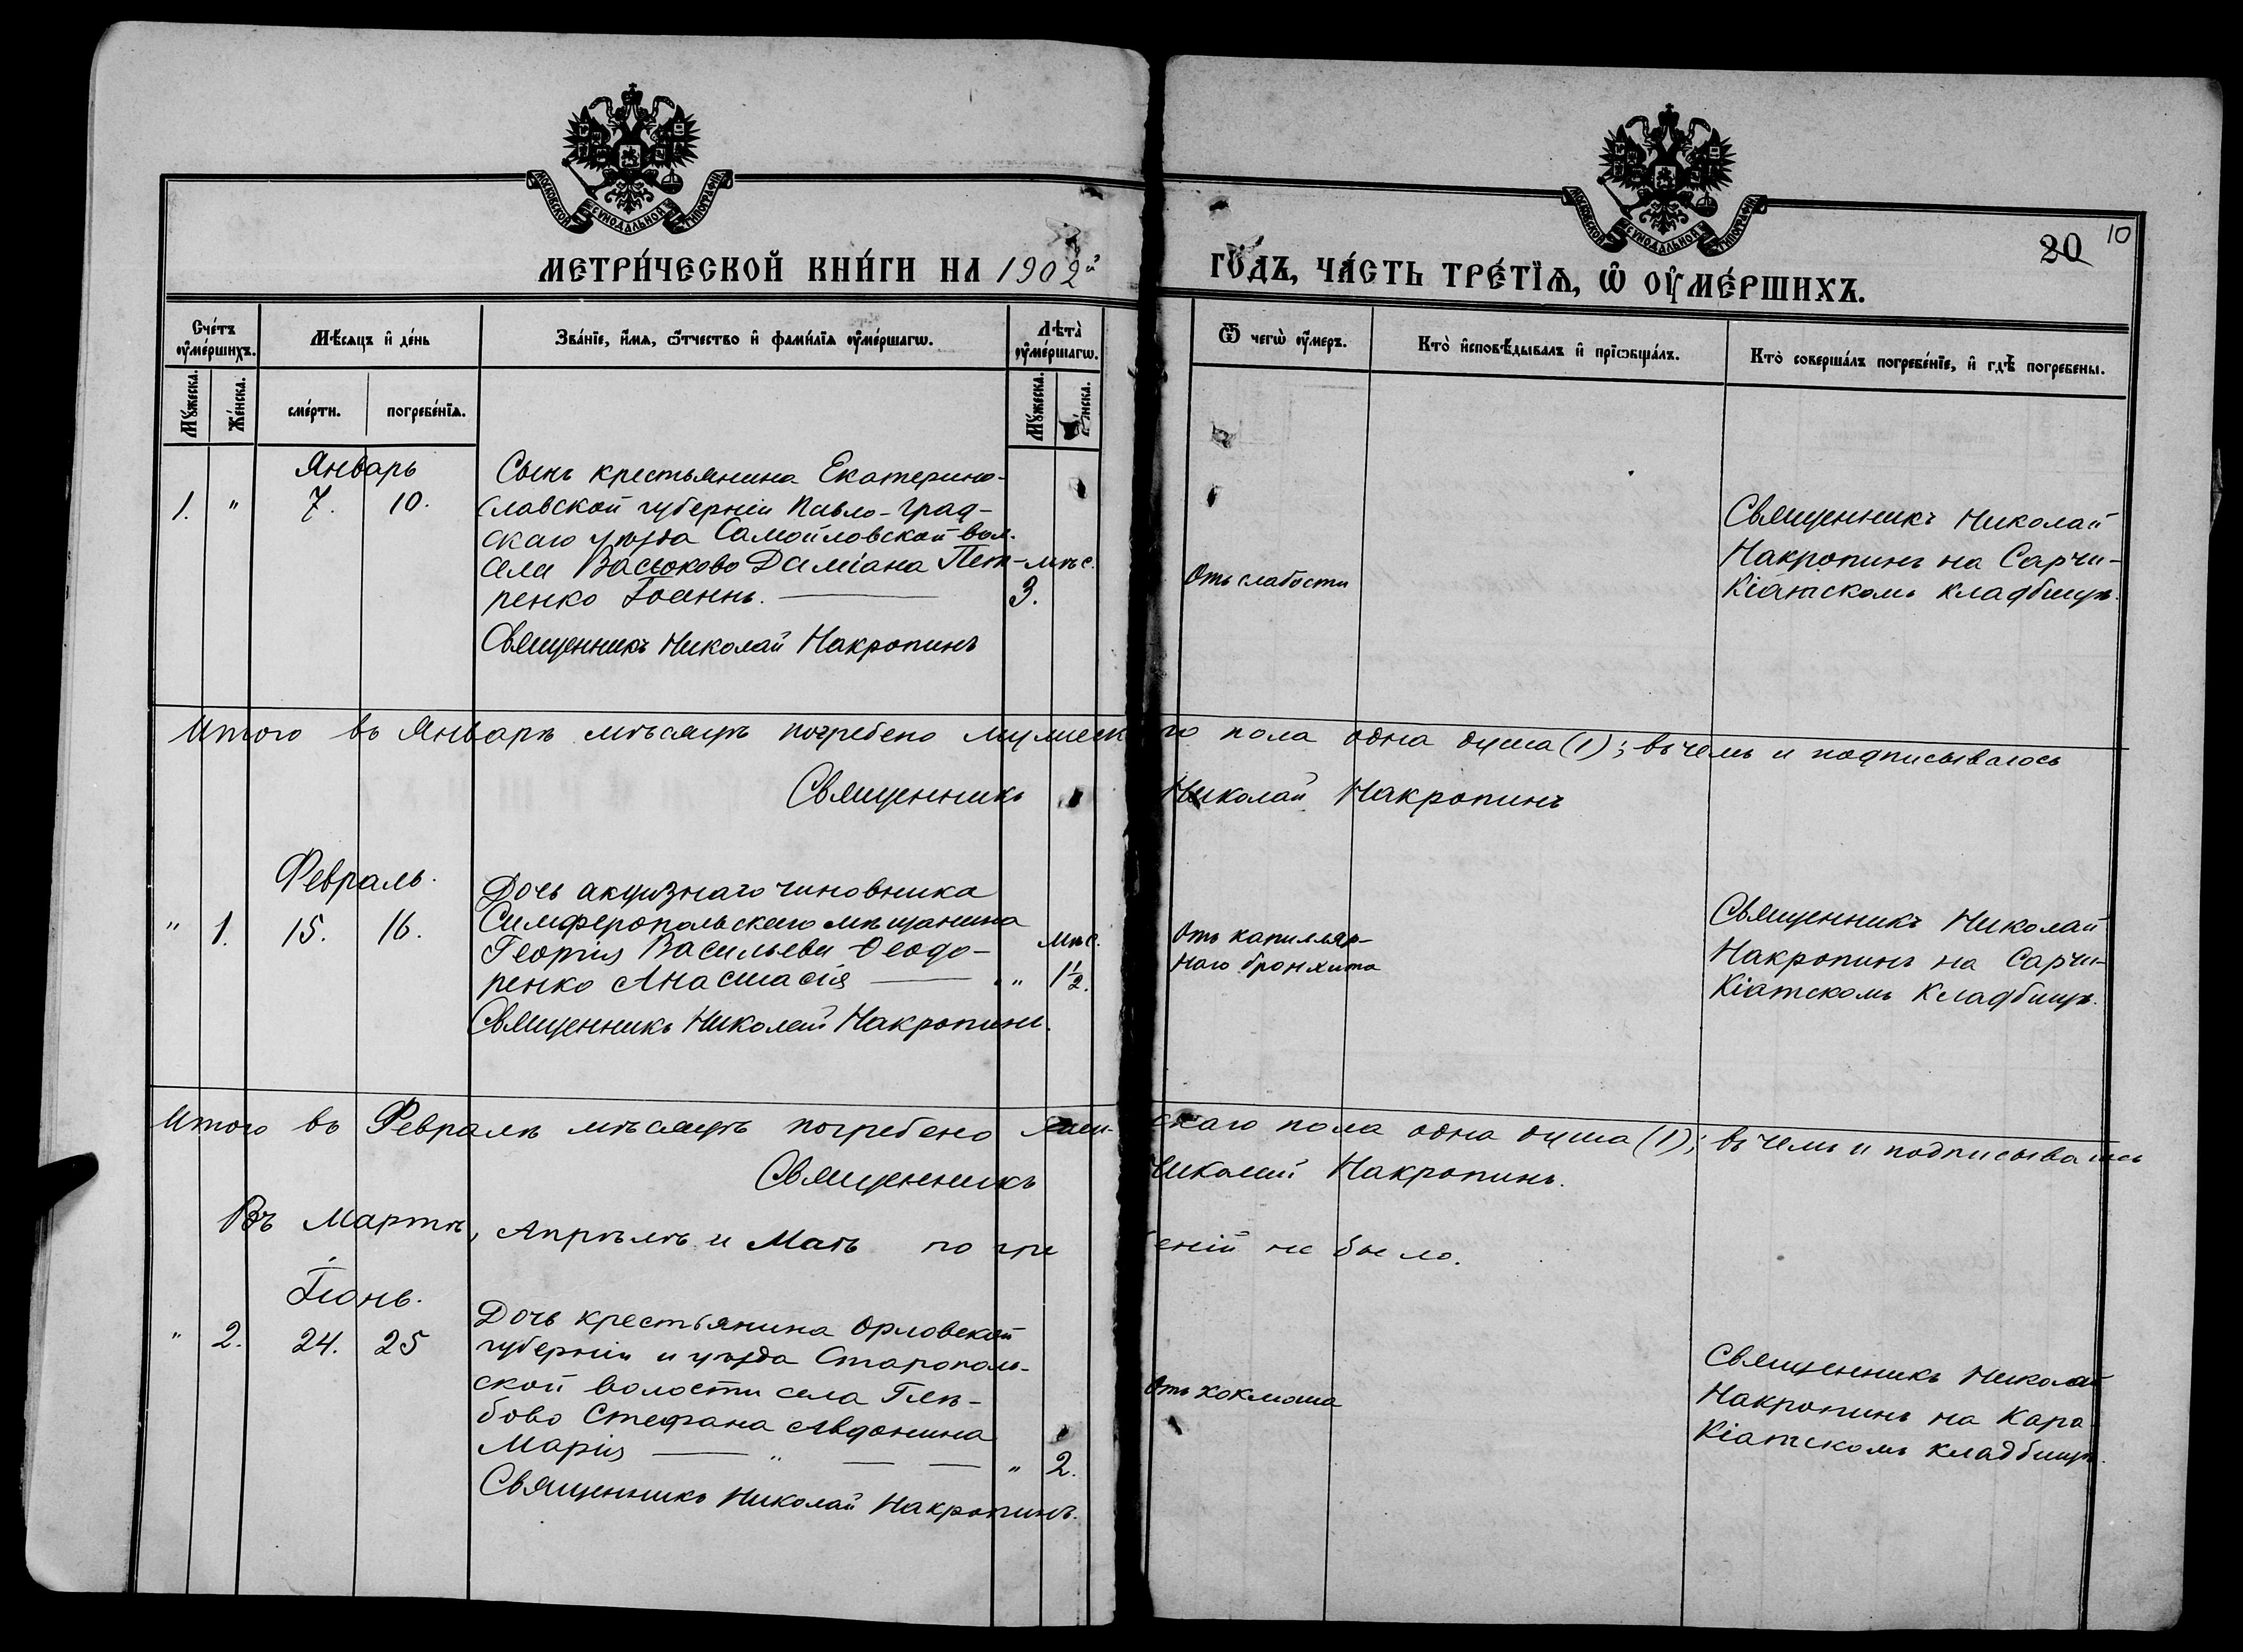 МОСКОВСКОЙ СѴНОДАЛЬНОЙ ТИПОГРАФІИ
МОСКОВСКОЙ СѴНОДАЛЬНОЙ ТИПОГРАФІИ
20 10
МЕТРИ́ЧЕСКОЙ КНИ́ГИ НА 1902й
ГО́ДЪ, ЧА́СТЬ ТРЕ́ТІѦ, Ѡ҆ ОУ҆МЕ́РШИХЪ.
Сче́тъ оу҆ме́ршихъ.
Мѣ́сяцъ и҆ де́нь
Зва́нїе, и҆́мя, ѻ҆́тчество и҆ фами́лїя оу҆ме́ршагѡ.
Лѣта̀ оу҆ме́ршагѡ.
Ѿ чегѡ̀ оу҆́меръ.
Кто̀ и҆сповѣ́дывалъ и҆ прїѡбща́лъ.
Кто̀ соверша́лъ погребе́нїе, и҆ гдѣ̀ погребены.
Мꙋ́жеска. Же́нска.
сме́рти. погребе́нїѧ.
Мꙋ́жеска. нска.
Январь
1. " 7. 10.
Сынъ крестьянина Екатерино-
славской губерніи Павло-град-
скаго уѣзда Самойловской вол.
села Васюково Даміана Пет-
ренко Іоаннъ.
мѣс.
3.
Отъ слабости
Священникъ Николай
Накропинъ на Сарчи-
Кіатскомъ кладбищѣ.
Священникъ Николай Накропинъ
Итого въ Январѣ мѣсяцѣ погребено мужеск го пола одна душа (1); въ чемъ и подписываюсь
Священникъ Николай Накропинъ
Февраль.
" 1. 15. 16.
Дочь акцизнаго чиновника
Симферопольскаго мѣщанина
Георгія Васильева Ѳеодо-
ренко Анастасія
мѣс.
" 1½.
Отъ капилляр-
наго бронхита
Священникъ Николай
Накропинъ на Сарчи-
Кіатскомъ кладбищѣ.
Священникъ Николай Накропинъ.
Итого въ Февралѣ мѣсяцѣ погребено жен- скаго пола одна душа (1); въ чемъ и подписываюсь
Священникъ Николай Накропинъ.
Въ Мартѣ, Апрѣлѣ и Маѣ погре еній не было.
Іюнь.
" 2. 24. 25
Дочь крестьянина Орловской
губерніи и уѣзда Старополь-
ской волости села Глѣ-
бово Стефана Авдонина
Марія " " 2.
Отъ коклюша
Священникъ Николай
Накропинъ на Кара-
Кіатскомъ кладбищѣ.
Священникъ Николай Накропинъ.